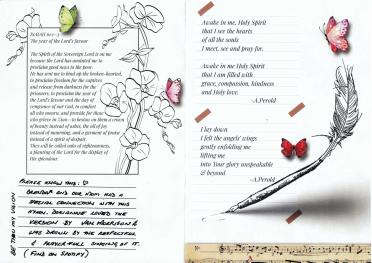 ISAIAH 61:1-3
The year of the Lord's favour
The Spirit of the Sovereign Lord is on me
because the Lord has anointed me to
proclaim good news to the poor.
He has sent me to bind up the broken-hearted,
to proclaim freedom for the captives
and release from darkness for the
prisoners, to proclaim the year of
the Lord's favour and the day of
vengeance of our God, to comfort
all who mourn, and provide for those
who grieve in Zion - to bestow on them a crown
of beauty instead of ashes, the oil of joy
instead of mourning, and a garment of praise
instead of a spirit of despair.
They will be called oaks of righteousness,
a planting of the Lord for the display of
His splendour.
PLEASE KNOW THIS:
BRENDA AND OUR MOM HAD A
SPECIAL CONNECTION WITH THIS
HYMN. DORIANNE LOVED THE
VERSION BY VAN MORRISON &
WAS DRAWN BY THE RESPECTFUL
& PRAYERFUL SINGING OF IT.
(FIND ON SPOTIFY)
BE THOU MY VISION
Awake in me, Holy Spirit
that I see the hearts
of all the souls
I meet, see and pray for.
Awake in me Holy Spirit
that I am filled with
grace, compassion, kindness
and Holy love.
~A.Perold
I lay down
I felt the angels' wings
gently enfolding me
lifting me
into Your glory unspeakable
& beyond
~A.Perold